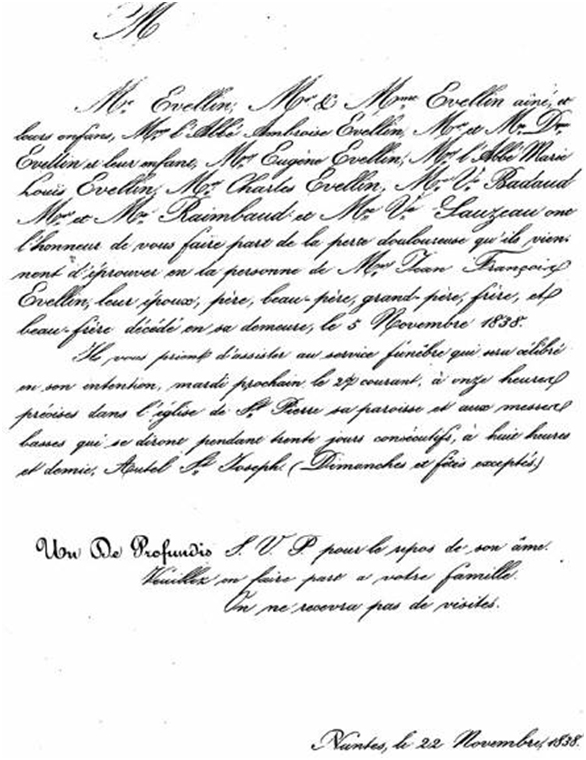 M
Me Evellin, Mr & Mme Evellin ainé, et
leurs enfans, Mr l'Abbé Ambroise Evellin, Mr et Me Dr
Evellin et leur enfant, Mr Eugène Evellin, Mr l'Abbé Marie
Louis Evellin, Mr Charles Evellin, Me Ve Badaud
Mr et Me Raimbaud et Me Ve Lauzeau ont
l'honneur de vous faire part de la perte douloureuse qu'ils vien-
nent d'éprouver en la personne de Mr Jean François
Evellin, leur époux, père, beau-père, grand-père, frère, et
beau-frère décédé en sa demeure, le 5 Novembre 1838.
Ils vous prient d'assister au service funèbre qui sera célébré
en son intention, mardi prochain le 27 courant, à onze heures
précises dans l'église de St Pierre sa paroisse et aux messes
basses qui se diront pendant trente jours consécutifs, à huit heures
et demie, Autel St Joseph. (Dimanches et fêtes exceptés.)
Un De Profundis S. V. P. pour le repos de son âme.
Veuillez en faire part a votre famille.
On ne recevra pas de visites.
Nantes, le 22 Novembre, 1838.